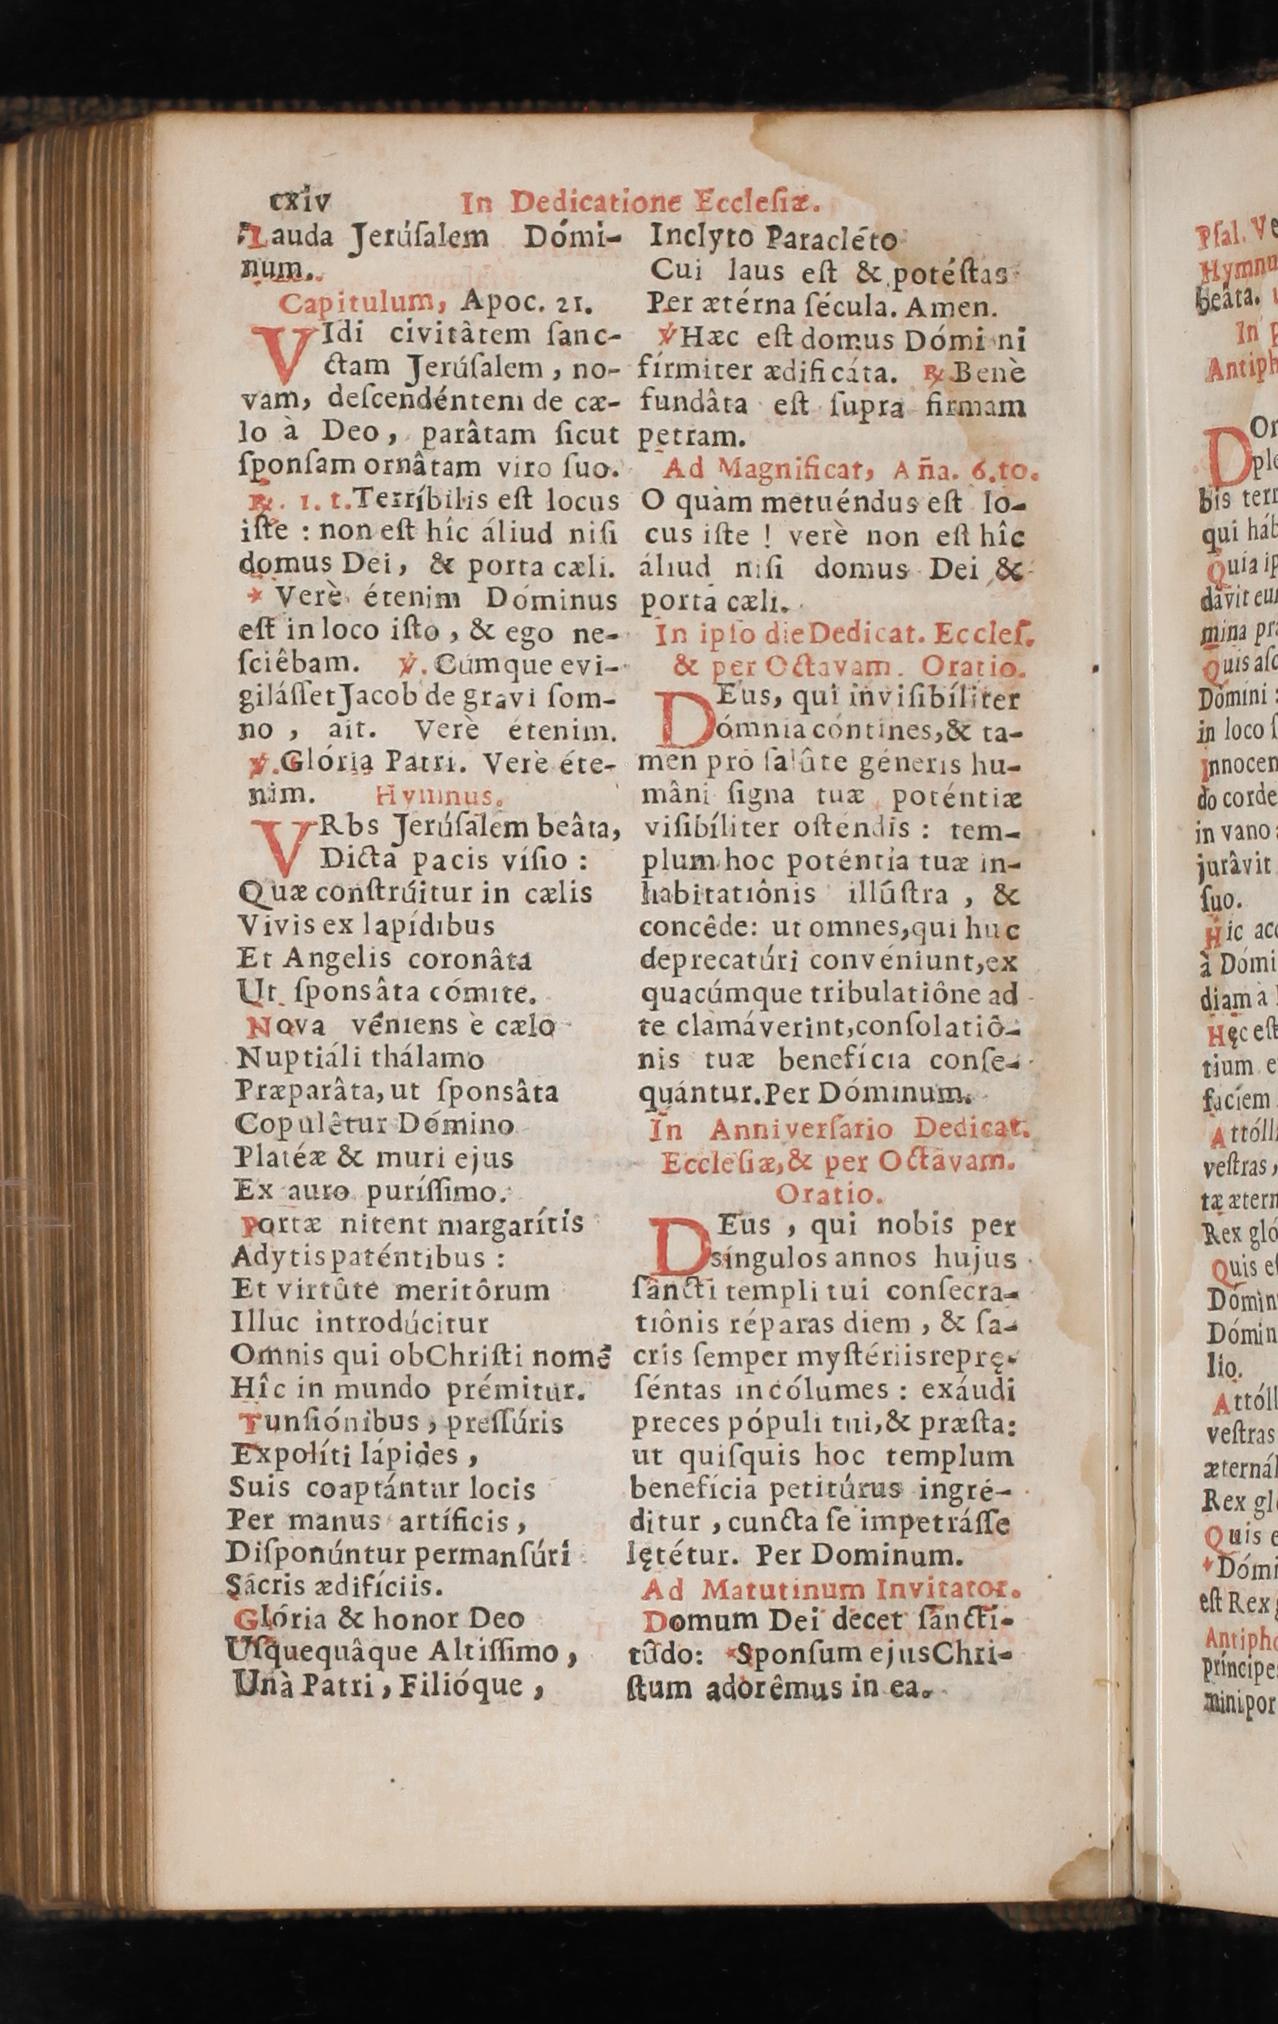 cxiv In Dedicatione Eccleſiæ.
Lauda Jerúſalem Dómi-
num.
Capitulum, Apoc. 21.
VIdi civitàtem ſanc-
ctam Jerúſalem, no-
vam, deſcendéntem de cæ-
lo à Deo, parâtam ſicut
ſponſam ornâtam viro ſuo.
℟. 1. t. Terríbilis eſt locus
iſte : non eſt híc áliud niſi
domus Dei, & porta cæli.
* Verè étenim Dóminus
eſt in loco iſto, & ego ne-
ſciêbam. ℣. Cúmque evi-
giláſſet Jacob de gravi ſom-
no, ait. Verè étenim.
℣. Glória Patri. Verè éte-
nim. Hymnus.
VRbs Jerúſalem beâta,
Dicta pacis víſio :
Quæ conſtrúitur in cælis
Vivis ex lapídibus
Et Angelis coronâta
Ut ſponsâta cómite.
Nova véniens è cælo
Nuptiáli thálamo
Præparâta, ut ſponsâta
Copulêtur Dómino
Platéæ & muri ejus
Ex auro puríſſimo.
Portæ nitent margarítis
Adytis paténtibus :
Et virtûte meritôrum
Illuc introdúcitur
Omnis qui ob Chriſti nomẽ
Hîc in mundo prémitur.
Tunſiónibus, preſſúris
Expolíti lápides,
Suis coaptántur locis
Per manus artíficis,
Diſponúntur permanſúri
Sácris ædifíciis.
Glória & honor Deo
Uſquequâque Altiſſimo,
Unà Patri, Filióque,
Inclyto Paracléto
Cui laus eſt & potéſtas
Per ætérna ſécula. Amen.
℣ Hæc eſt domus Dómini
fírmiter ædificáta. ℟. Benè
fundâta eſt ſupra firmam
petram.
Ad Magnificat, Aña. 6. to.
O quàm metuéndus eſt lo-
cus iſte ! verè non eſt hîc
áliud niſi domus Dei &
porta cæli.
In ipſo die Dedicat. Eccleſ.
& per Octavam. Oratio.
DEus, qui inviſibíliter
ómnia cóntines, & ta-
men pro ſalûte géneris hu-
mâni ſigna tuæ poténtiæ
viſibíliter oſtendis : tem-
plum hoc poténtia tuæ in-
habitatiônis illúſtra, &
concêde: ut omnes, qui huc
deprecatúri convéniunt, ex
quacúmque tribulatiône ad
te clamáverint, conſolatiô-
nis tuæ benefícia conſe-
quántur. Per Dóminum.
In Anniverſario Dedicat.
Eccleſiæ, & per Octavam.
Oratio.
DEus, qui nobis per
síngulos annos hujus
ſancti templi tui conſecra-
tiônis réparas diem, & ſa-
cris ſemper myſtériis reprę-
ſéntas incólumes : exáudi
preces pópuli tui, & præſta:
ut quiſquis hoc templum
benefícia petitúrus ingré-
ditur, cuncta ſe impetráſſe
lętétur. Per Dominum.
Ad Matutinum Invitator.
Domum Dei decet ſancti-
túdo: * Sponſum ejus Chri-
ſtum adorêmus in ea.
Pſal. Ve
Hymnu
beâta.
In p
Antiph